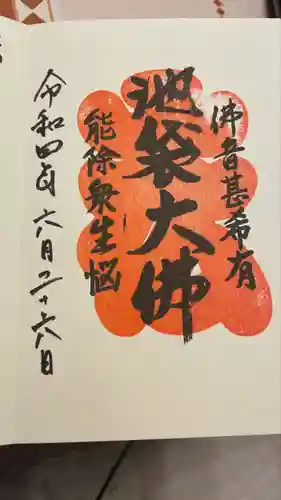 佛音甚希有
池袋大佛
能除衆生惱
令和四年六月二十六日